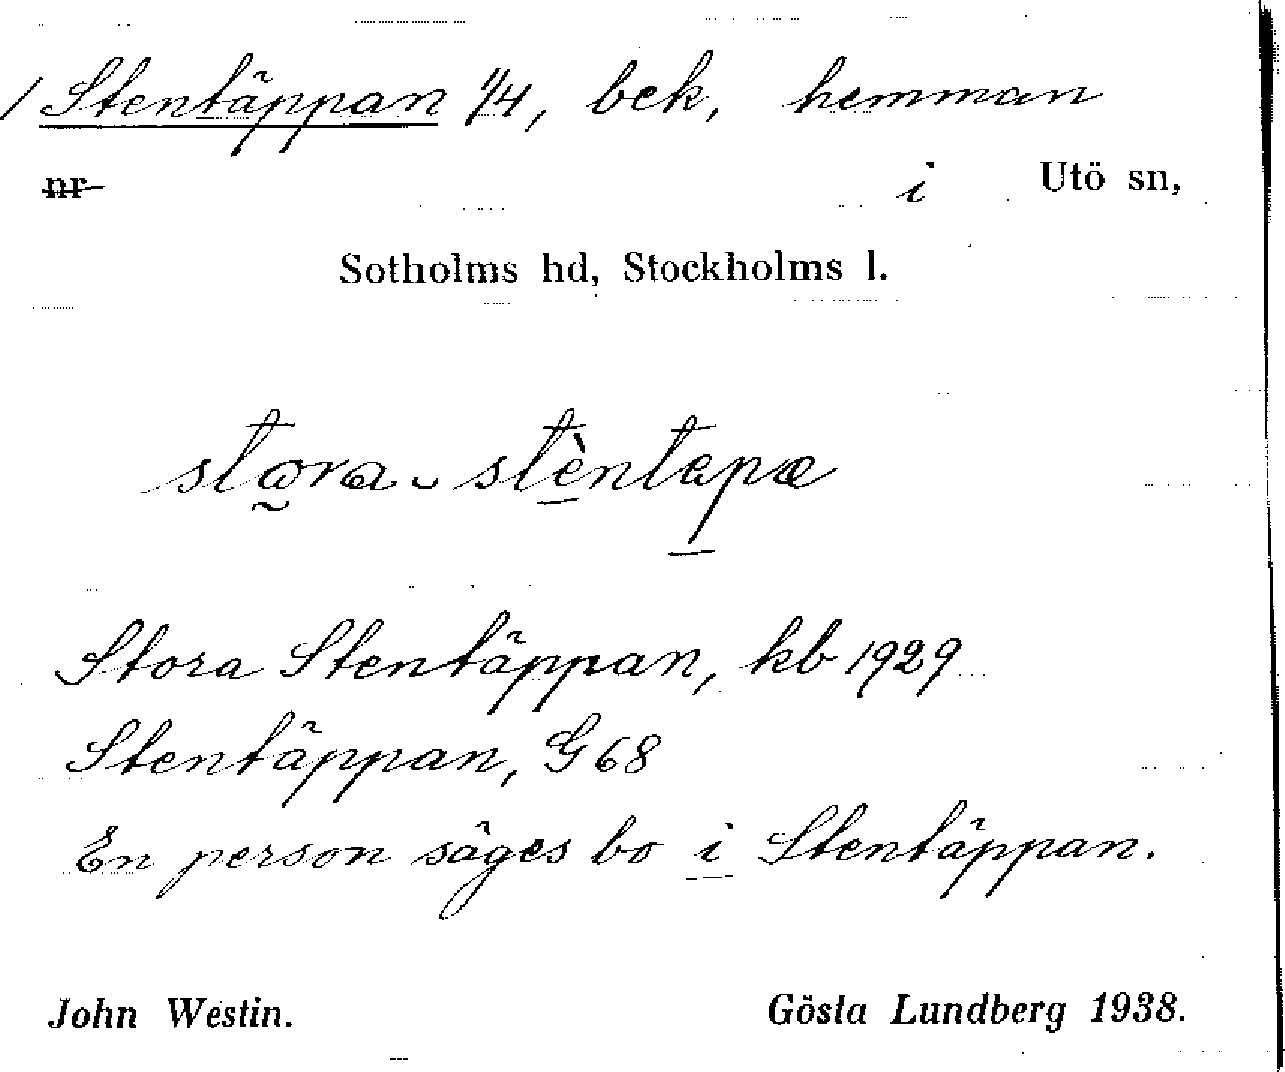 / Stentäppan 1/4, bek, hemman
nr i Utö sn,
Sotholms hd, Stockholms l.
Stora Stentäppan, kb 1929
Stentäppan, G 68
En person säges bo i Stentäppan.
John Westin. Gösta Lundberg 1938.